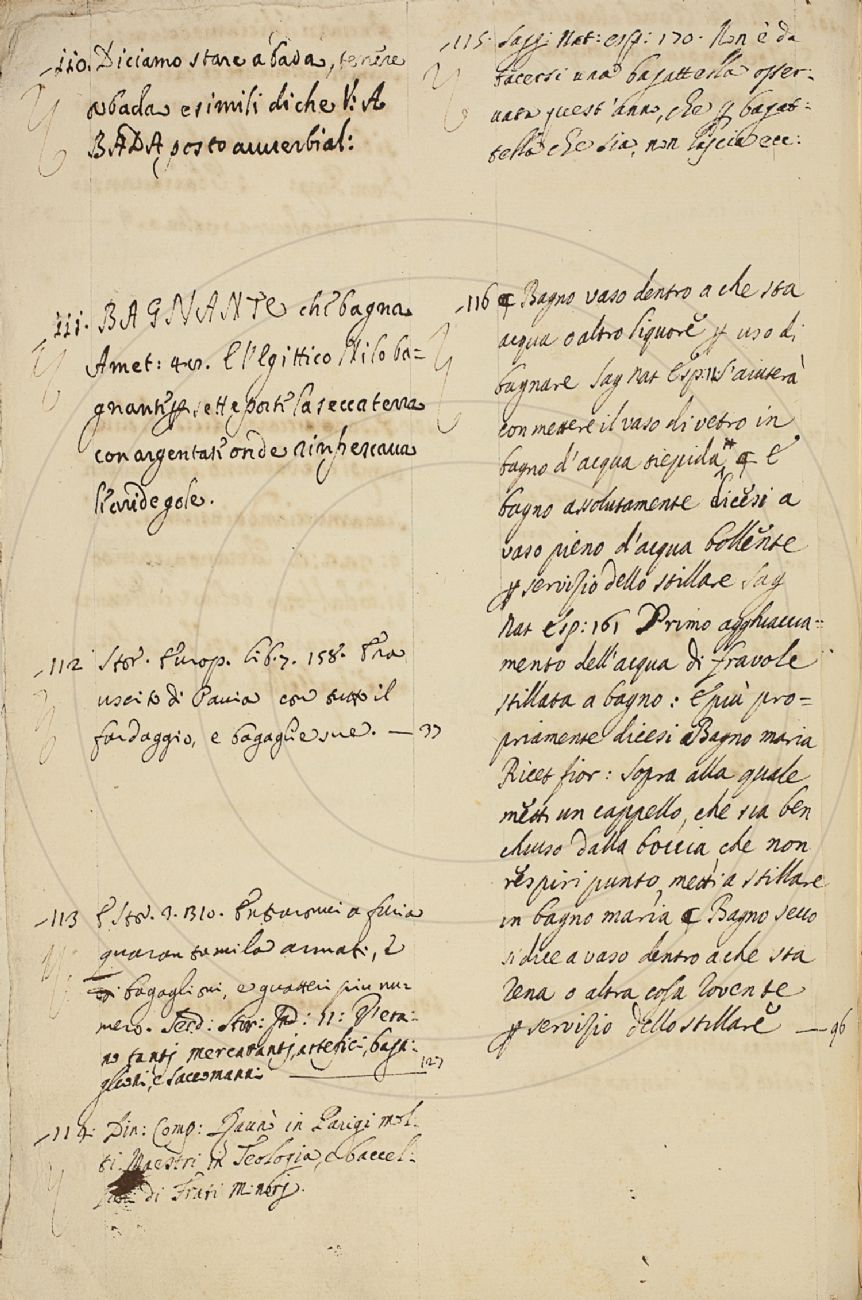 110. Diciamo stare a bada, tenere
a bada e simili di che V: A
BADA, posto auuerbial:
111. BAGNANTE che bagna
Amet: 48. E l'Egittico Nilo ba=
gnante p sette porte la secca terra
con argentate onde rinfrescaua
l'aride gole.
112 Stor. Europ. lib. 7. 158. Era
uscito di Pauia con tutto il
fardaggio, e bagaglie sue. — 37
113 E Stor. 3. 1310. Entraronui a furia
quaranta mila armati, e
di bagaglioni, e quatteri piu nu-
mero. Serd: Stor: Ind: 11: V'era-
no tanti mercatanti, artefici, baga-
glioni, e saccomanni — 127
114: Din: Comp: Raunò in Parigi mol-
ti Maestri in Teologia, e baccel-
di Frati Minori.
115. Sagg: Nat: esp: 170. Non è da
tacersi una bagattella osser-
uata quest'anno, che p bagat-
tella che sia, non lascia ecc:
116 ¶ Bagno vaso dentro a che sta
acqua o altro liquore p uso di
bagnare Sag Nat Esp: 11 S'aiuterà
con mettere il vaso di vetro in
bagno d'acqua tiepida ¶ E
bagno assolutamente dicesi a
vaso pieno d'acqua bollente
p servizio dello stillare Sag
Nat Esp: 161 Primo agghiaccia=
mento dell'acqua di fravole
stillata a bagno: E più pro=
priamente dicesi Bagno maria
Ricet fior: Sopra alla quale
metti un cappello, che sia ben
chiuso dalla boccia, che non
respiri punto, metti a stillare
in bagno maria ¶ Bagno secco
si dice a vaso dentro a che sta
rena o altra cosa rovente
p servizio dello stillare — 96